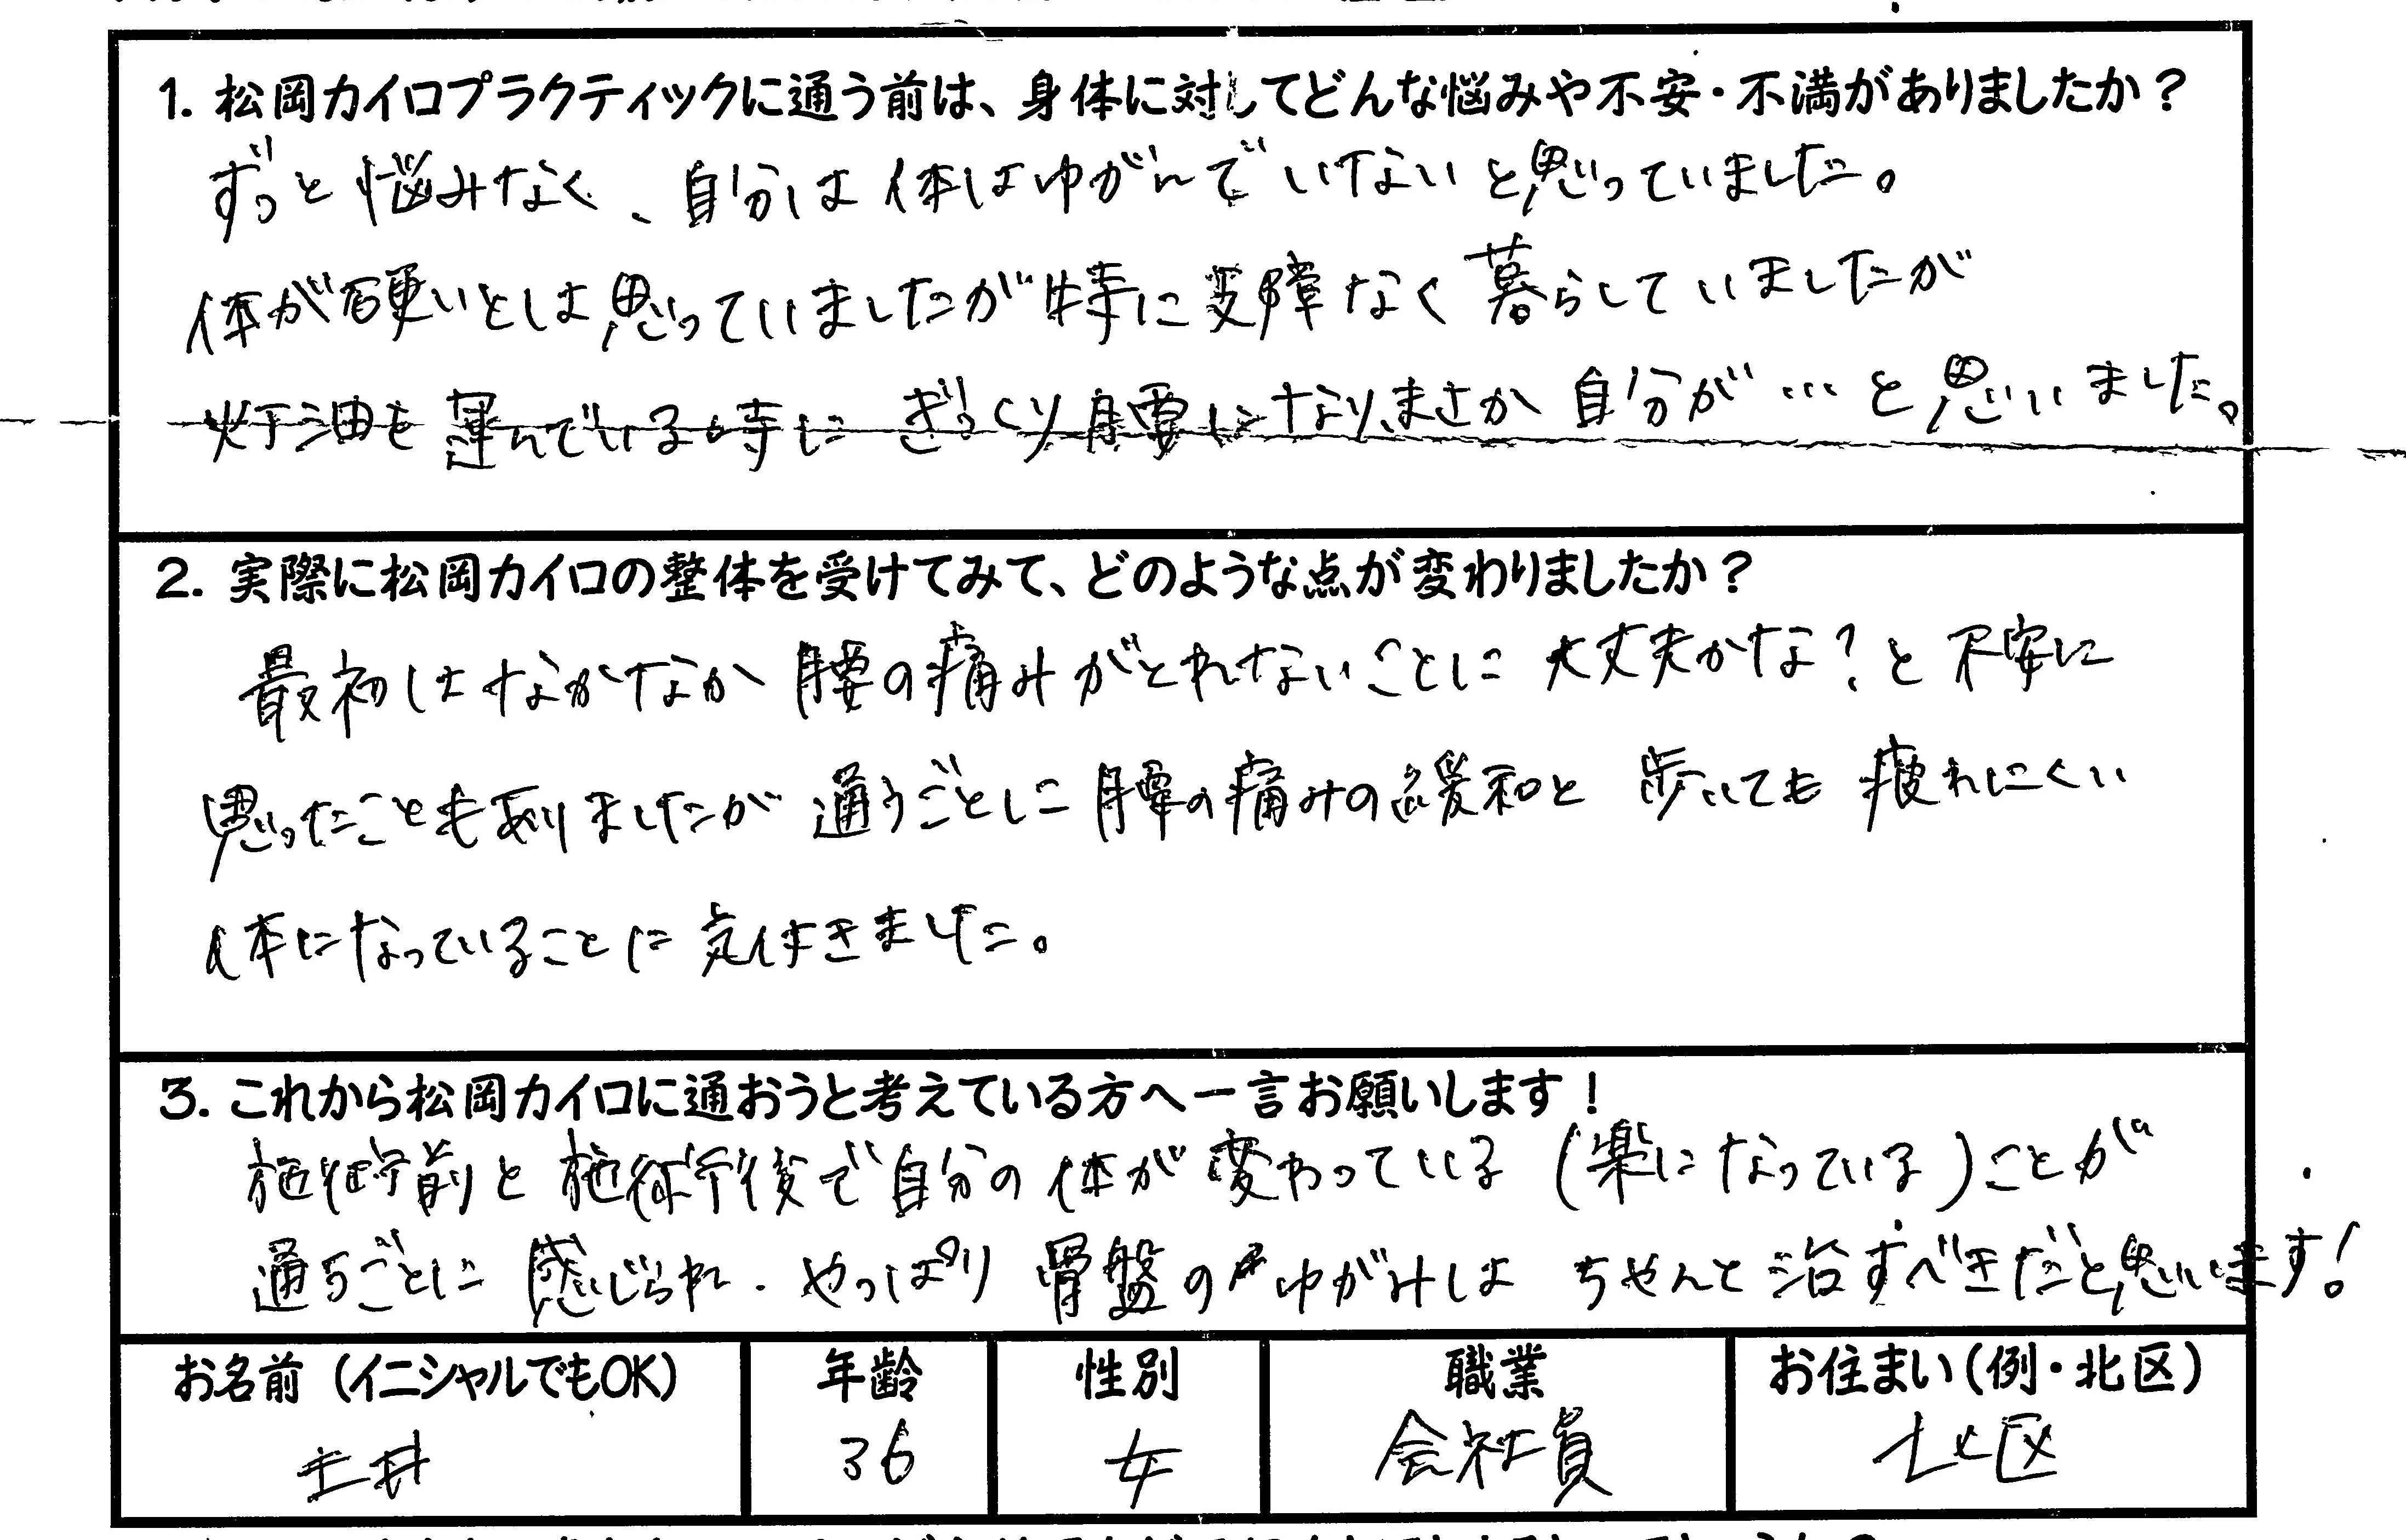 1. 松岡カイロプラクティックに通う前は、身体に対してどんな悩みや不安・不満がありましたか？
ずっと悩みなく、自分は体はゆがんでいないと思っていました。
体が硬いとは思っていましたが特に支障なく暮らしていましたが
灯油を運んでいる時にぎっくり腰になり、まさか自分が…と思いました。
2. 実際に松岡カイロの整体を受けてみて、どのような点が変わりましたか？
最初はなかなか腰の痛みがとれないことに大丈夫かな？と不安に
思ったことも有りましたが通うごとに腰の痛みの緩和と歩いても疲れにくい
体になっていることに気付きました。
3. これから松岡カイロに通おうと考えている方へ一言お願いします！
施術前と施術後で自分の体が変わっている（楽になっている）ことが
通うごとに感じられ、やっぱり骨盤のゆがみはちゃんと治すべきだと思います！
お名前（イニシャルでもOK） 年齢 性別 職業 お住まい（例・北区）
土井 36 女 会社員 北区